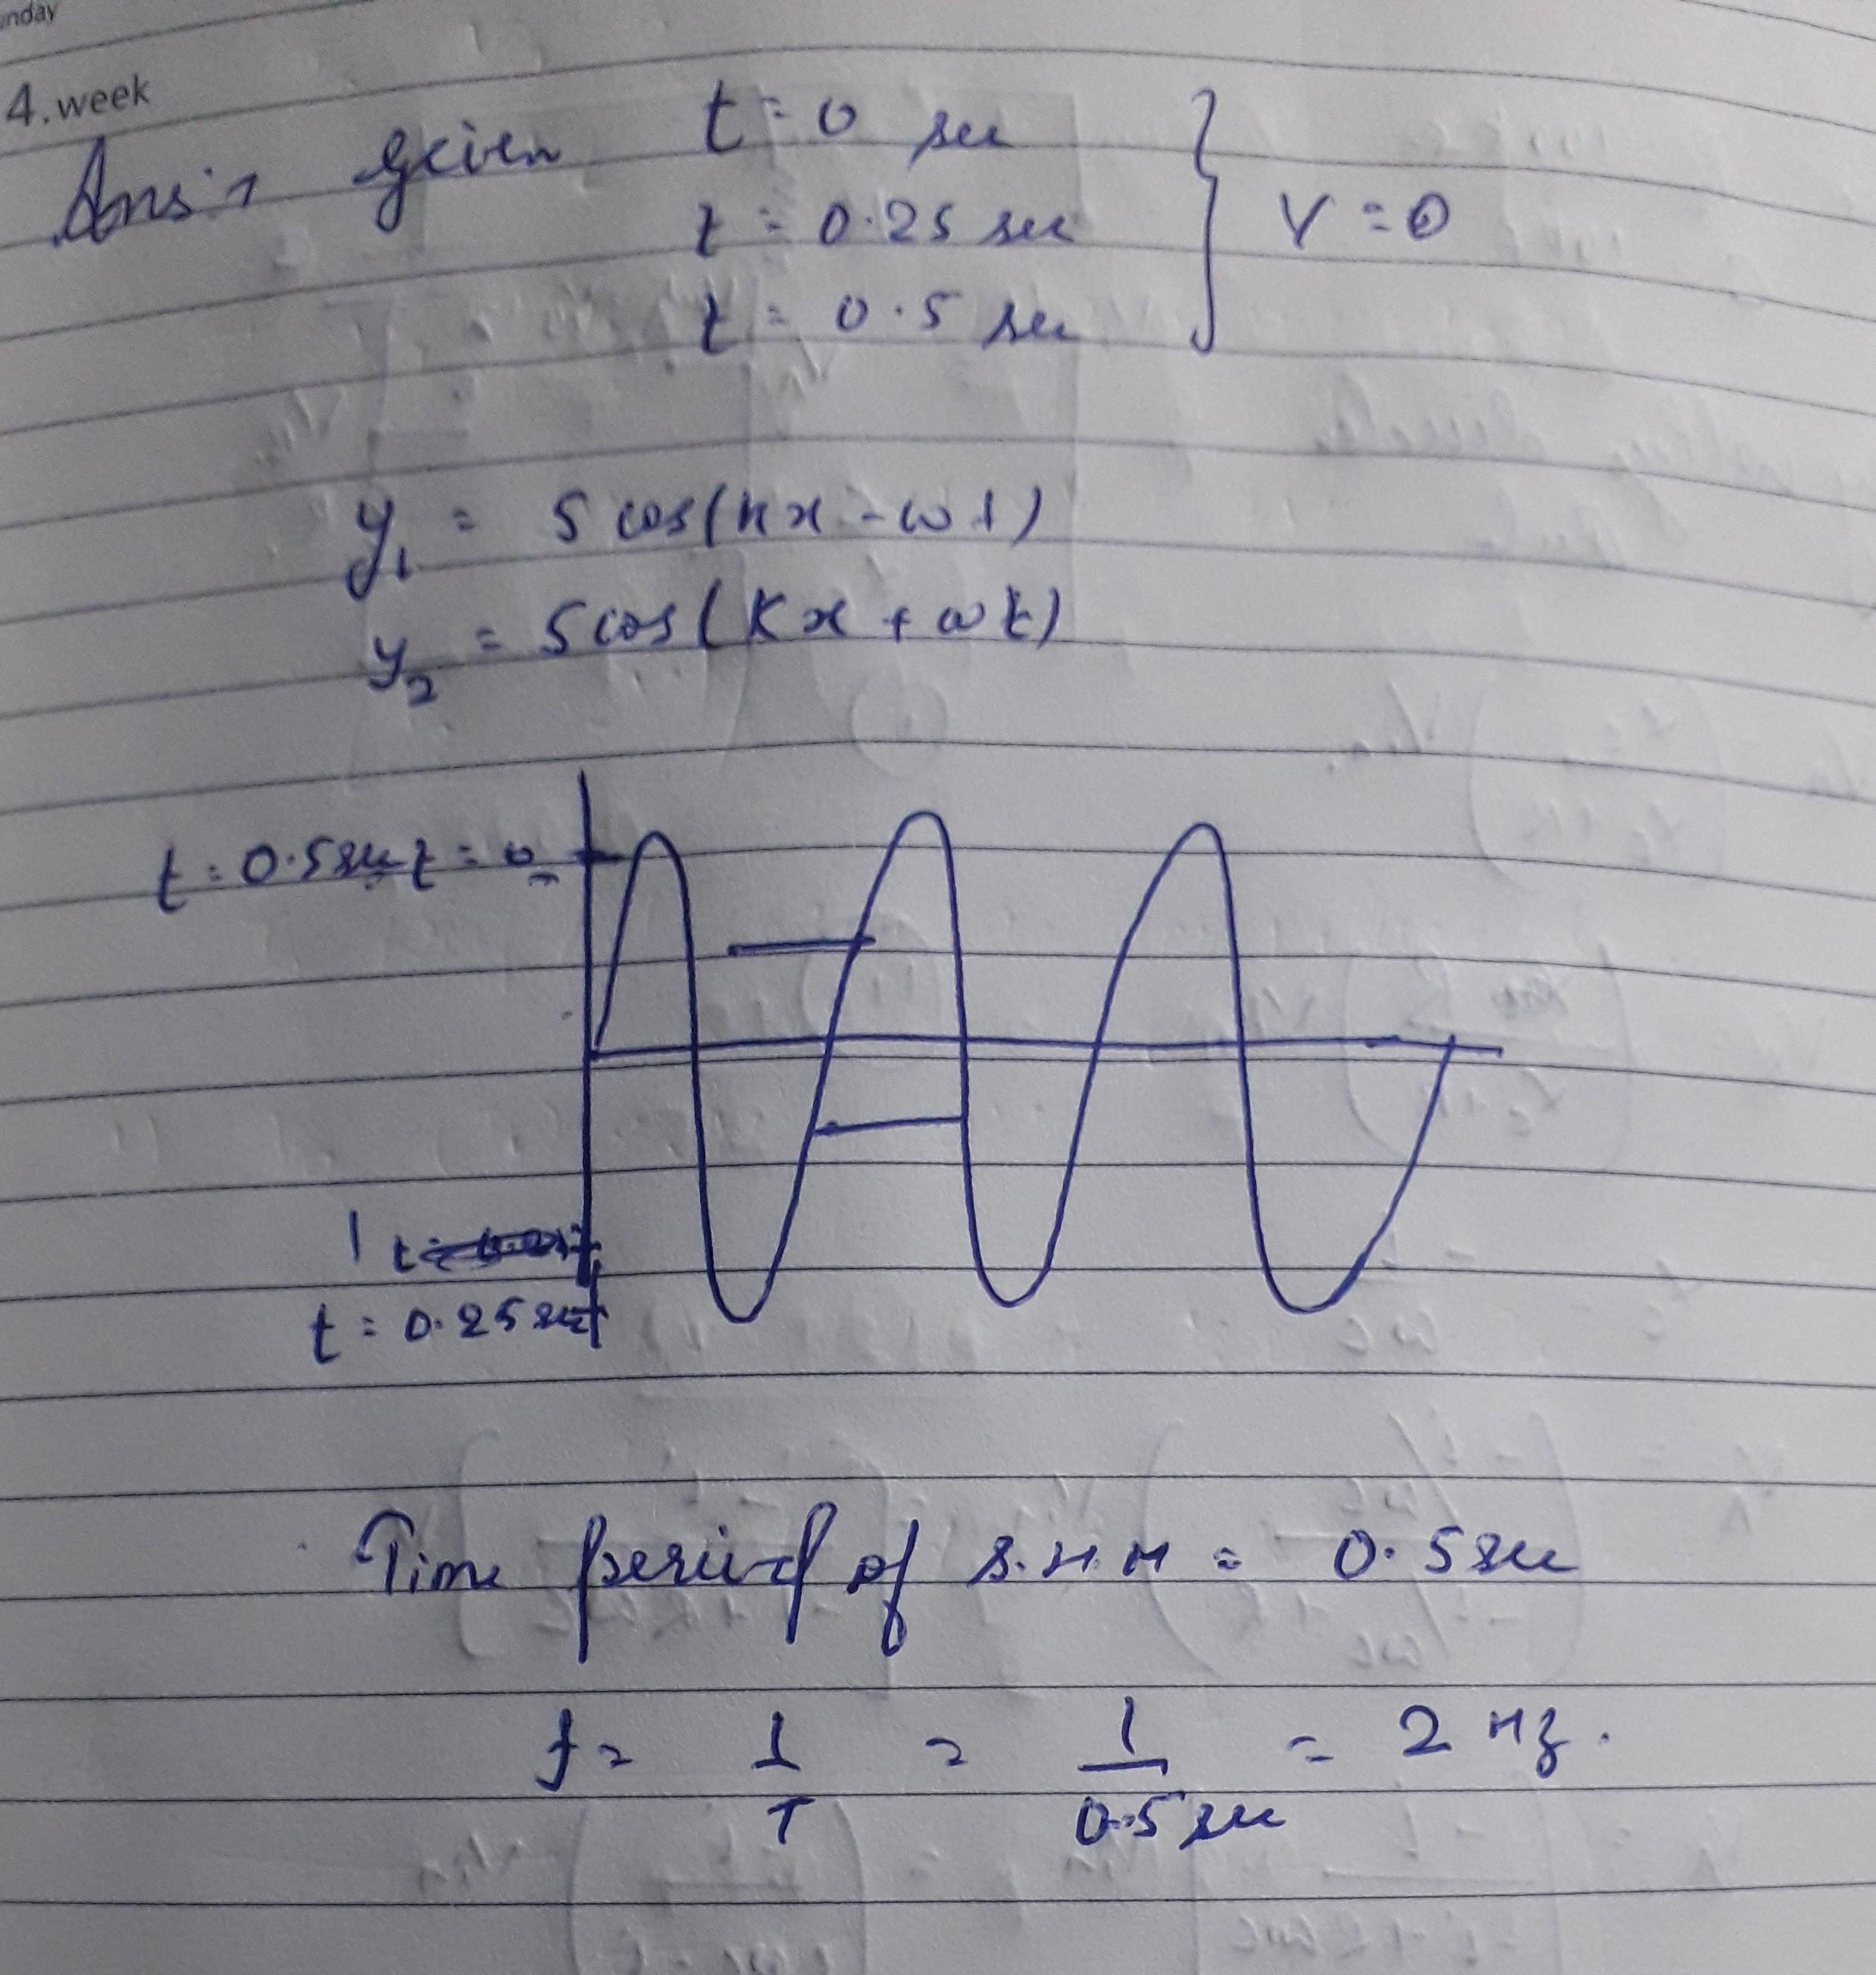 4.week
Ans:1 given t = 0 sec
t = 0.25 sec
t = 0.5 sec
V = 0
y₁ = 5 cos(kx - ωt)
y₂ = 5 cos(kx + ωt)
t = 0.5 sec t = 0
t = 0.25 sec
Time period of S.H.M = 0.5 sec
f = 1/T = 1/0.5 sec = 2 Hz.